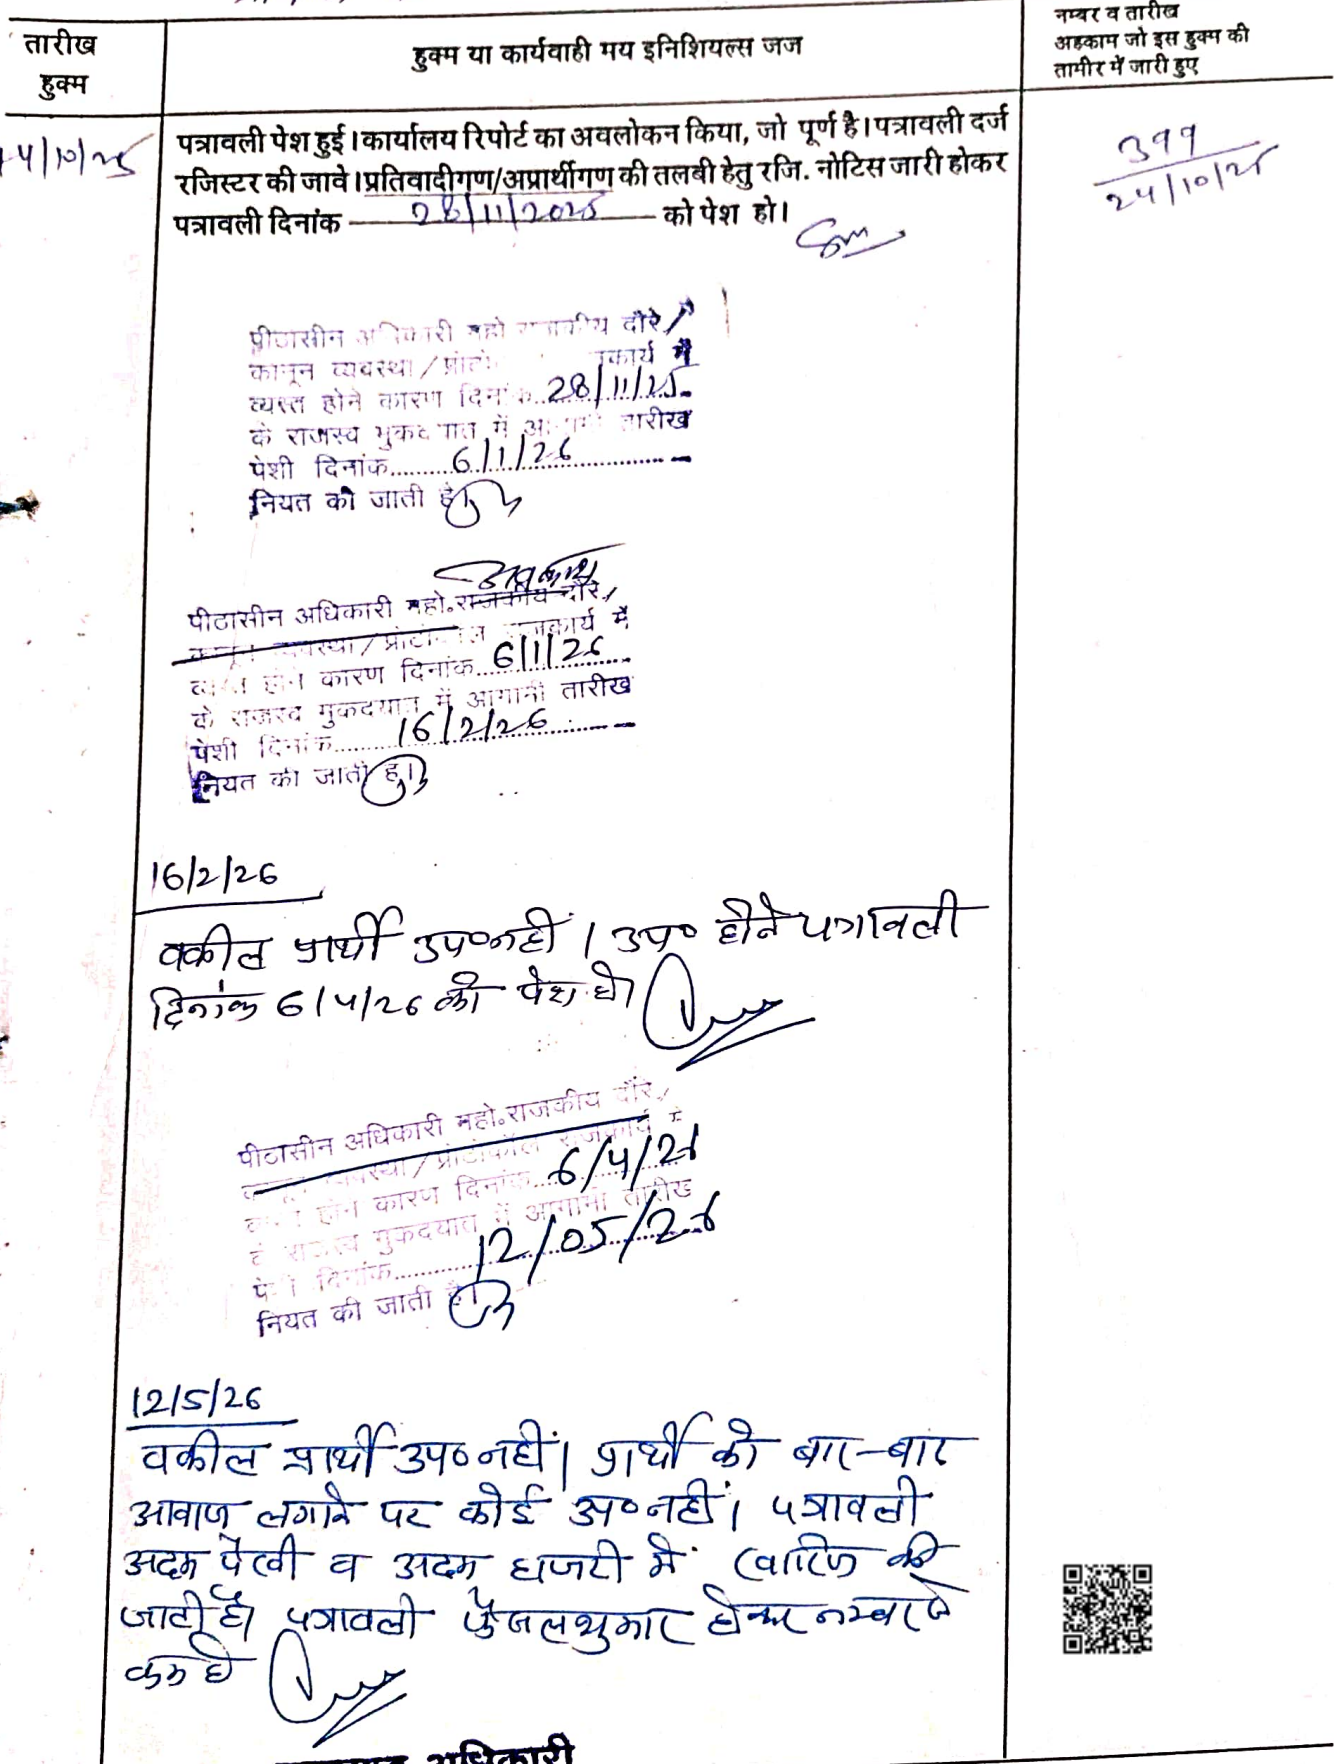 तारीख
हुक्म
हुक्म या कार्यवाही मय इनिशियल्स जज
नम्बर व तारीख
अहकाम जो इस हुक्म की
तामीर में जारी हुए
4/10/25
पत्रावली पेश हुई। कार्यालय रिपोर्ट का अवलोकन किया, जो पूर्ण है। पत्रावली दर्ज
रजिस्टर की जावे। प्रतिवादीगण/अप्रार्थीगण की तलबी हेतु रजि. नोटिस जारी होकर
पत्रावली दिनांक 28/11/2025 को पेश हो।
399
24/10/25
पीठासीन अधिकारी महो राजकीय दौरे/
कानून व्यवस्था / प्रोटो कार्य में
व्यस्त होने कारण दिनांक 28/11/25
के राजस्व मुकदयात में आगामी तारीख
पेशी दिनांक 6/1/26
नियत की जाती है।
अवकाश
पीठासीन अधिकारी महो.राजकीय दौरे,
कानून व्यवस्था / प्रोटोकॉल राजकार्य में
व्यस्त होने कारण दिनांक 6/1/26
के राजस्व मुकदयात में आगामी तारीख
पेशी दिनांक 16/2/26
नियत की जाती है।
16/2/26
वकील प्रार्थी उप० नहीं। उप० होने पत्रावली
दिनांक 6/4/26 को पेश हो।
पीठासीन अधिकारी महो.राजकीय दौरे,
व्यवस्था / प्रोटोकॉल राजकार्य में
होने कारण दिनांक 6/4/26
के राजस्व मुकदयात में आगामी तारीख
पेशी दिनांक 12/05/26
नियत की जाती है।
12/5/26
वकील प्रार्थी उप० नहीं। प्रार्थी को बार-बार
आवाज लगाने पर कोई उप० नहीं। पत्रावली
अदम पैरवी व अदम हाजरी में खारिज की
जाती है। पत्रावली फैजलशुमार होकर नम्बर से
कम हो
अधिकारी